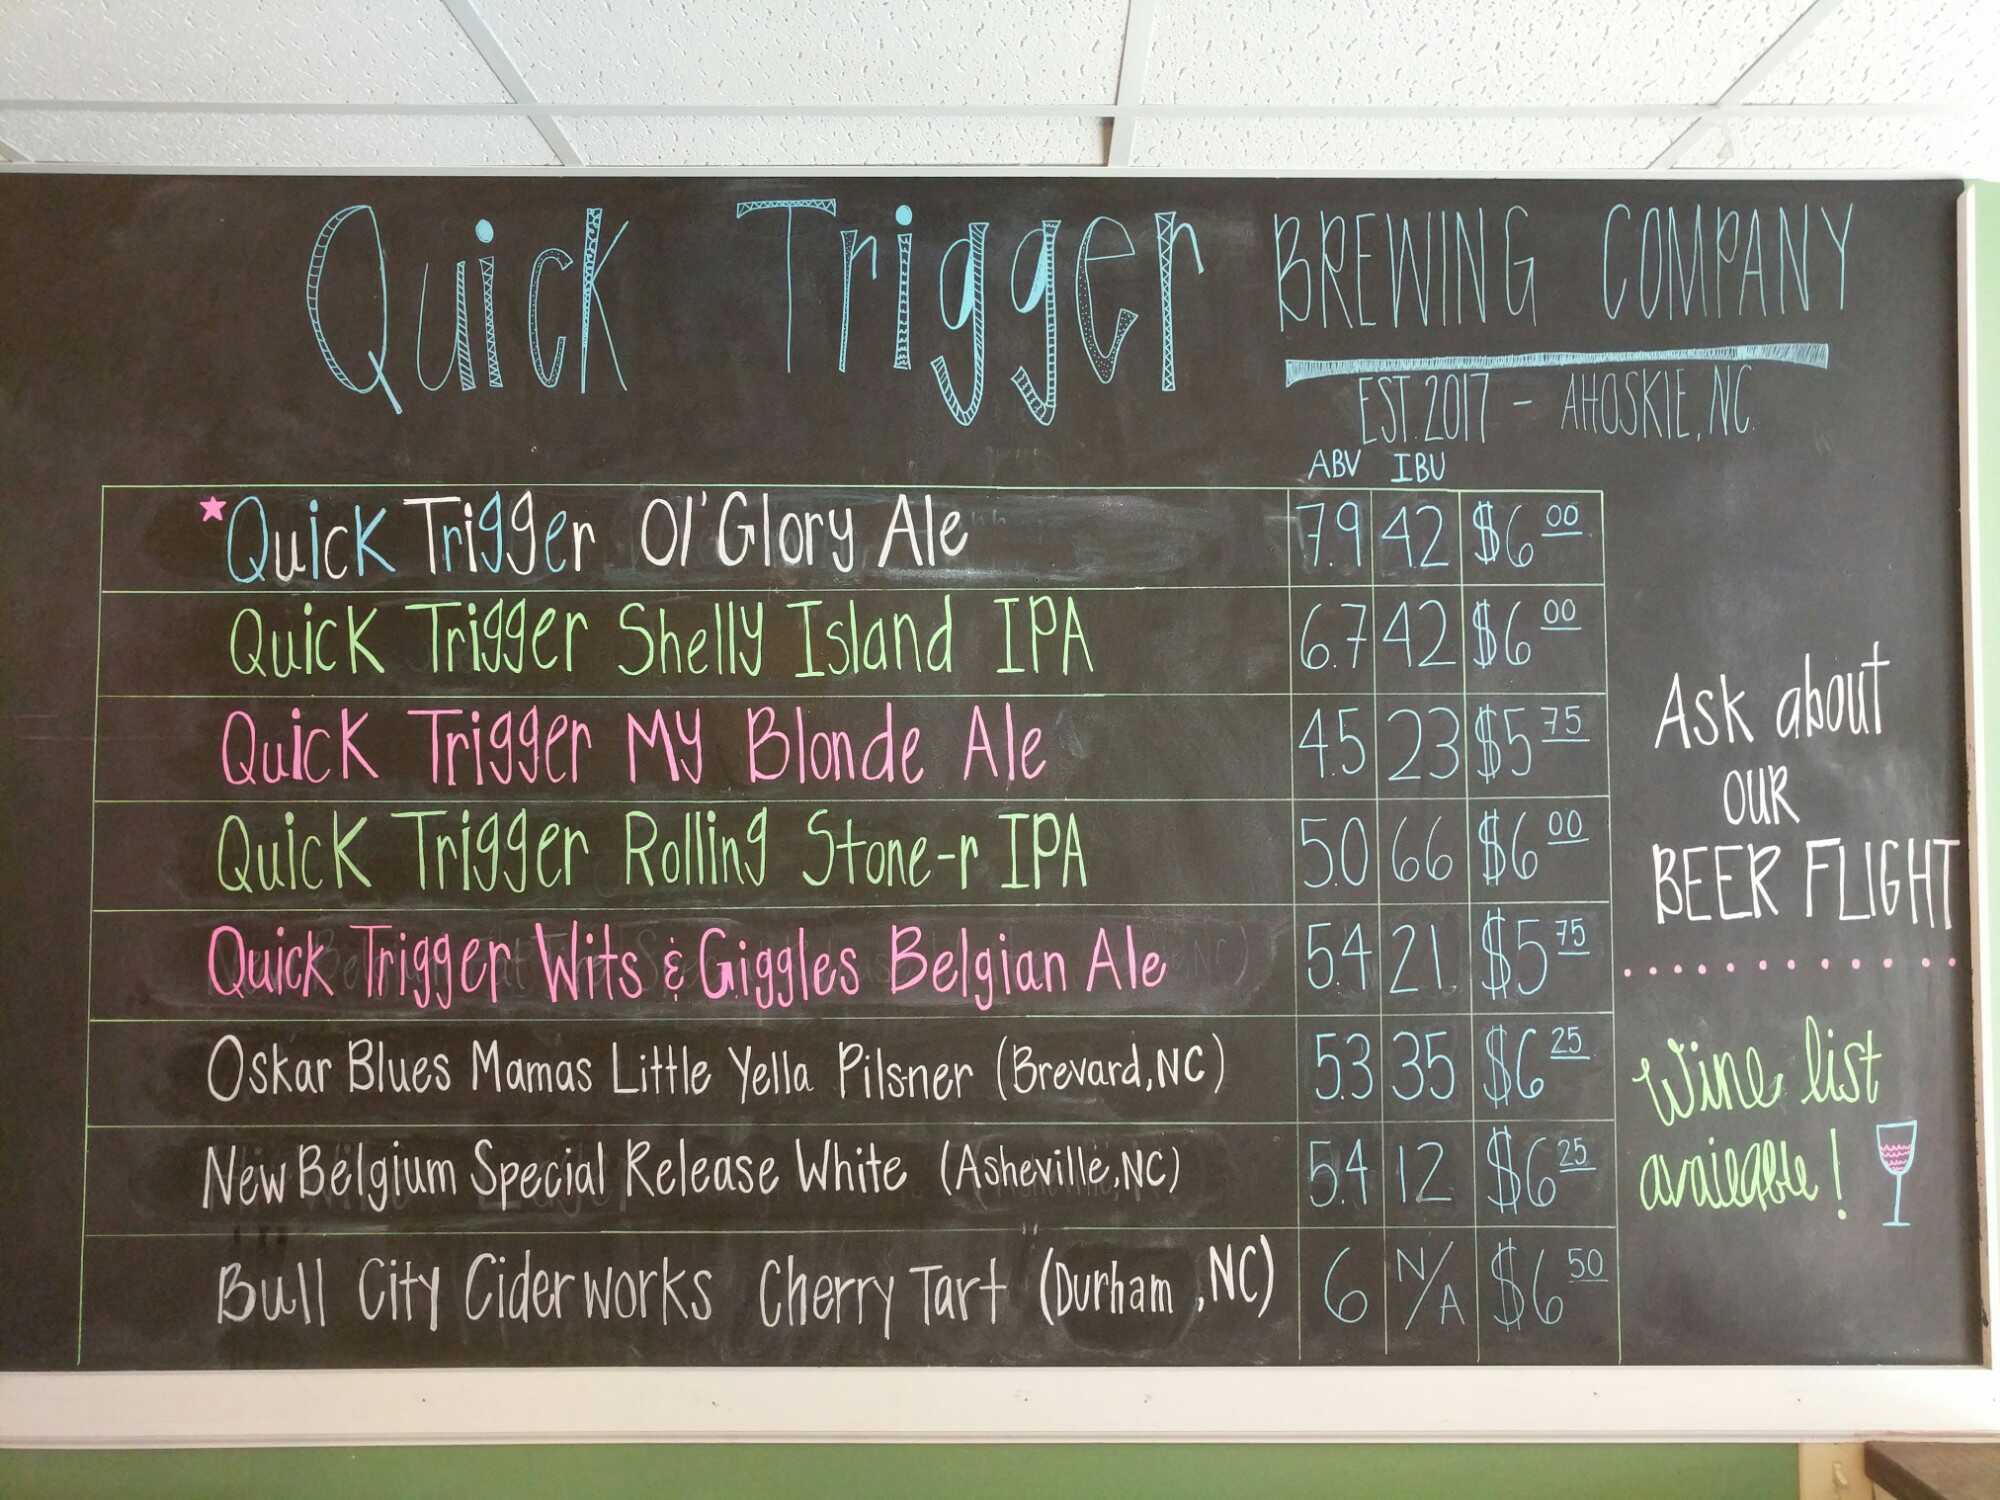 Quick Trigger BREWING COMPANY
EST. 2017 - AHOSKIE, NC.
ABV IBU
Quick Trigger Ol' Glory Ale 7.9 42 $6 00
Quick Trigger Shelly Island IPA 6.7 42 $6 00
Quick Trigger My Blonde Ale 4.5 23 $5 75
Quick Trigger Rolling Stone-r IPA 5.0 66 $6 00
Quick Trigger Wits & Giggles Belgian Ale 5.4 21 $5 75
Oskar Blues Mamas Little Yella Pilsner (Brevard, NC) 5.3 35 $6 25
New Belgium Special Release White (Asheville, NC) 5.4 12 $6 25
Bull City Ciderworks Cherry Tart (Durham, NC) 6 N/A $6 50
Ask about
OUR
BEER FLIGHT
Wine list
available!